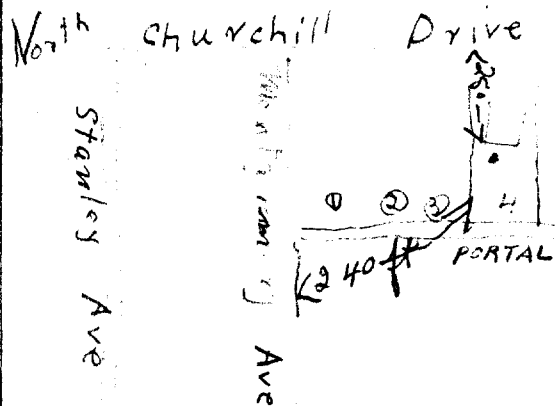 North Churchill Drive
Stanley Ave
Ave
① ② ③ 4
240 ft
PORTAL